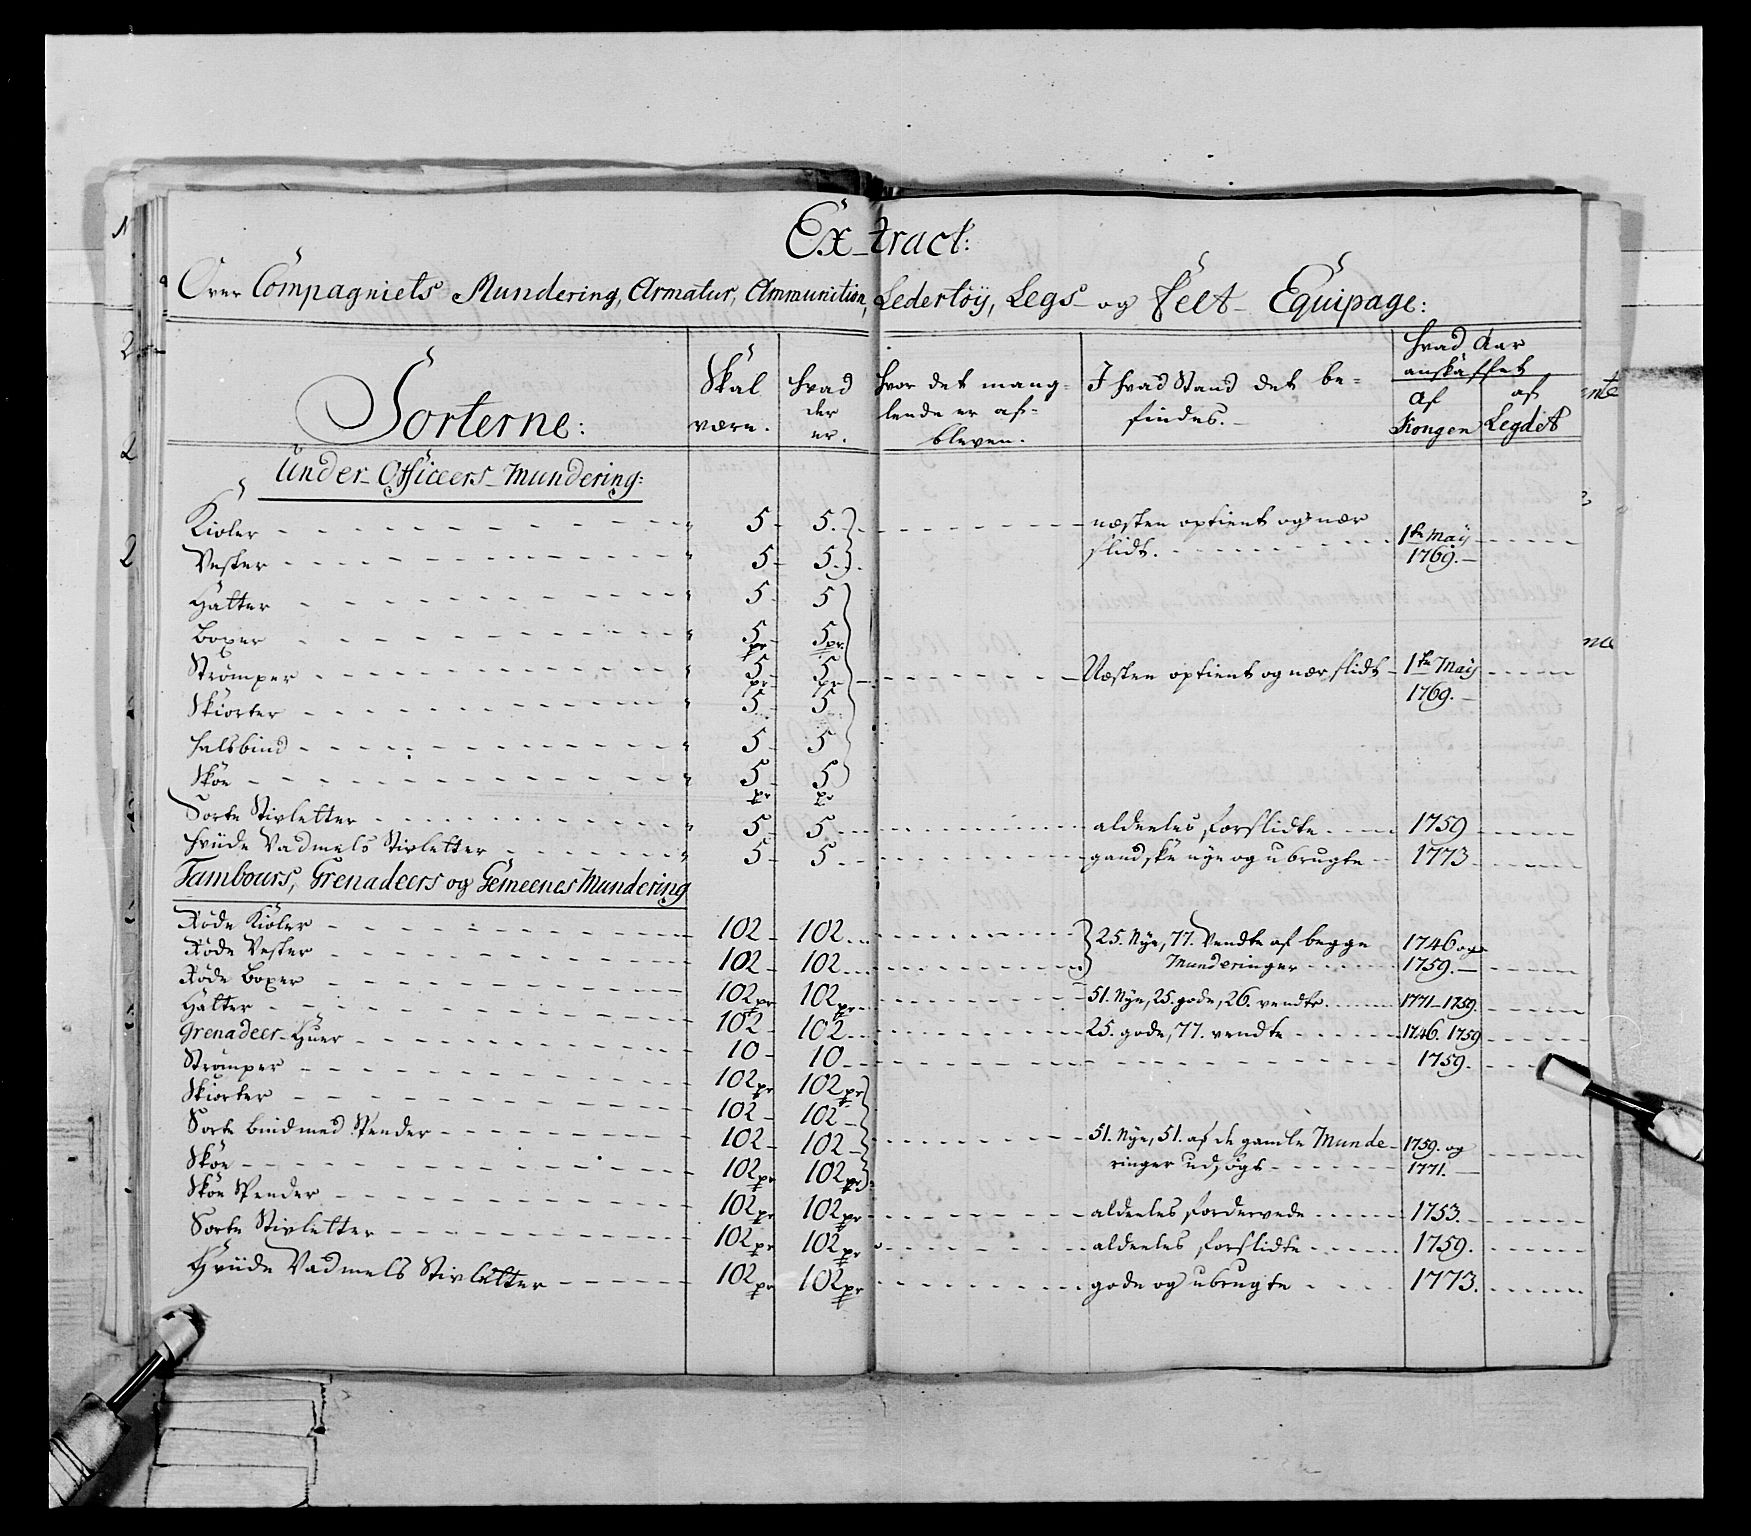 Extract:
Over Compagniets Mundering, Armatur, Ammunition, Ledertöy, Legs- og Felt- Equipage:
Sorterne: | Skal være. | Hvad der er. | Hvor det manglende er afbleven. | I hvad Stand det befindes. | Hvad Aar anskaffet af Kongen | af Legdet
Under-Officeers-Mundering:
Kioler - 5 - 5. - næsten optient og nær slidt. - 1te May 1769.
Vester - 5 - 5.
Hatter - 5 - 5
Boxer - 5 pr - 5 pr
Strømper - 5 pr - 5 pr - Næsten optient og nær slidt - 1te May 1769.
Skiorter - 5 - 5
Halsbind - 5 - 5
Skoe - 5 pr - 5 pr
Sorte Stivletter - 5 - 5 - aldeeles forslidte - 1759
Hviide Vadmels Stivletter - 5 - 5 - gandske nye og ubrugte - 1773
Tambours, Grenadeers og Gemeenes Mundering
Røde Kioler - 102 - 102 - 25. Nye, 77. Vendte af begge Munderinger - 1746 og 1759.
Røde Vester - 102 - 102
Røde Boxer - 102 pr - 102 pr - 51. Nye, 25. gode, 26. vendte. - 1771-1759.
Hatter - 102 - 102 - 25. gode, 77. vendte - 1746. 1759
Grenadeer-Huer - 10 - 10 - 1759.
Strømper - 102 pr - 102 pr
Skiorter - 102 - 102
Sorte bind med Spender - 102 - 102 - 51. Nye, 51. af de gamle Munderinger udsøgt - 1759. og 1771.
Skoe - 102 pr - 102 pr
Skoe Spender - 102 pr - 102 pr - aldeeles fordervede - 1753.
Sorte Stivletter - 102 pr - 102 pr - aldeeles forslidte - 1759.
Hviide Vadmels Stivletter - 102 pr - 102 pr - gode og ubrugte - 1773.